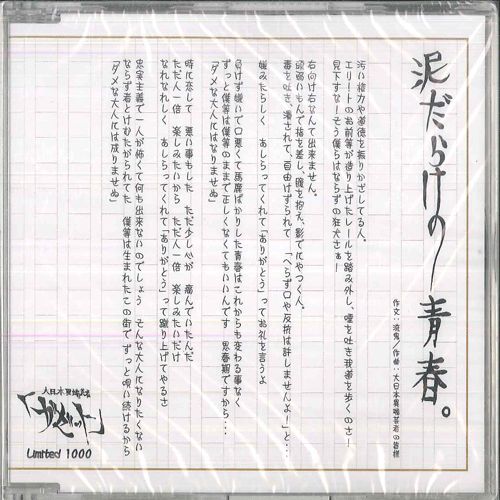 泥だらけの青春。
作文:流鬼/作曲:大日本異端芸者の皆様
汚い権力や道徳を振りかざしてる人。
エリートのお前等が造り上げたレールを踏み外し、唾を吐き我等を歩くのさ!
見下すなーそう僕らはならずの狂犬さぁー
右向け右なんて出来ません。
頭弱いもんで指を差し、腹を抱え、影でにやつく人。
毒を吐き、潰されて、自由げずられて 「へらず口や反抗は許しませんよー」と…
嫌みたらしく あしらってくれて「ありがとう」ってお礼を言うよ
負けず嫌いで口悪くて馬鹿ばかりした青春はこれからも変わる事なく
ずっと僕等は僕等のままで正しくなくてもいいんです 思春期ですから…
「ダメな大人にはなりませぬ」
時に恋して 悪い事もした ただ少し心が 痛んでいたんだ
ただ人一倍 楽しみたいから ただ人一倍 楽しみたいだけ
なれなれしく あしらってくれて「ありがとう」って蹴り上げてやるさ
忠実主義で一人が怖くて何も出来ないのでしょう そんな大人になりたくない
ならず者とけむたがられてた 僕等は生まれたこの街でずっと唄い続けるから
「ダメな大人には成りませぬ」
大日本異端芸者
「ガゼット」
Limited 1000